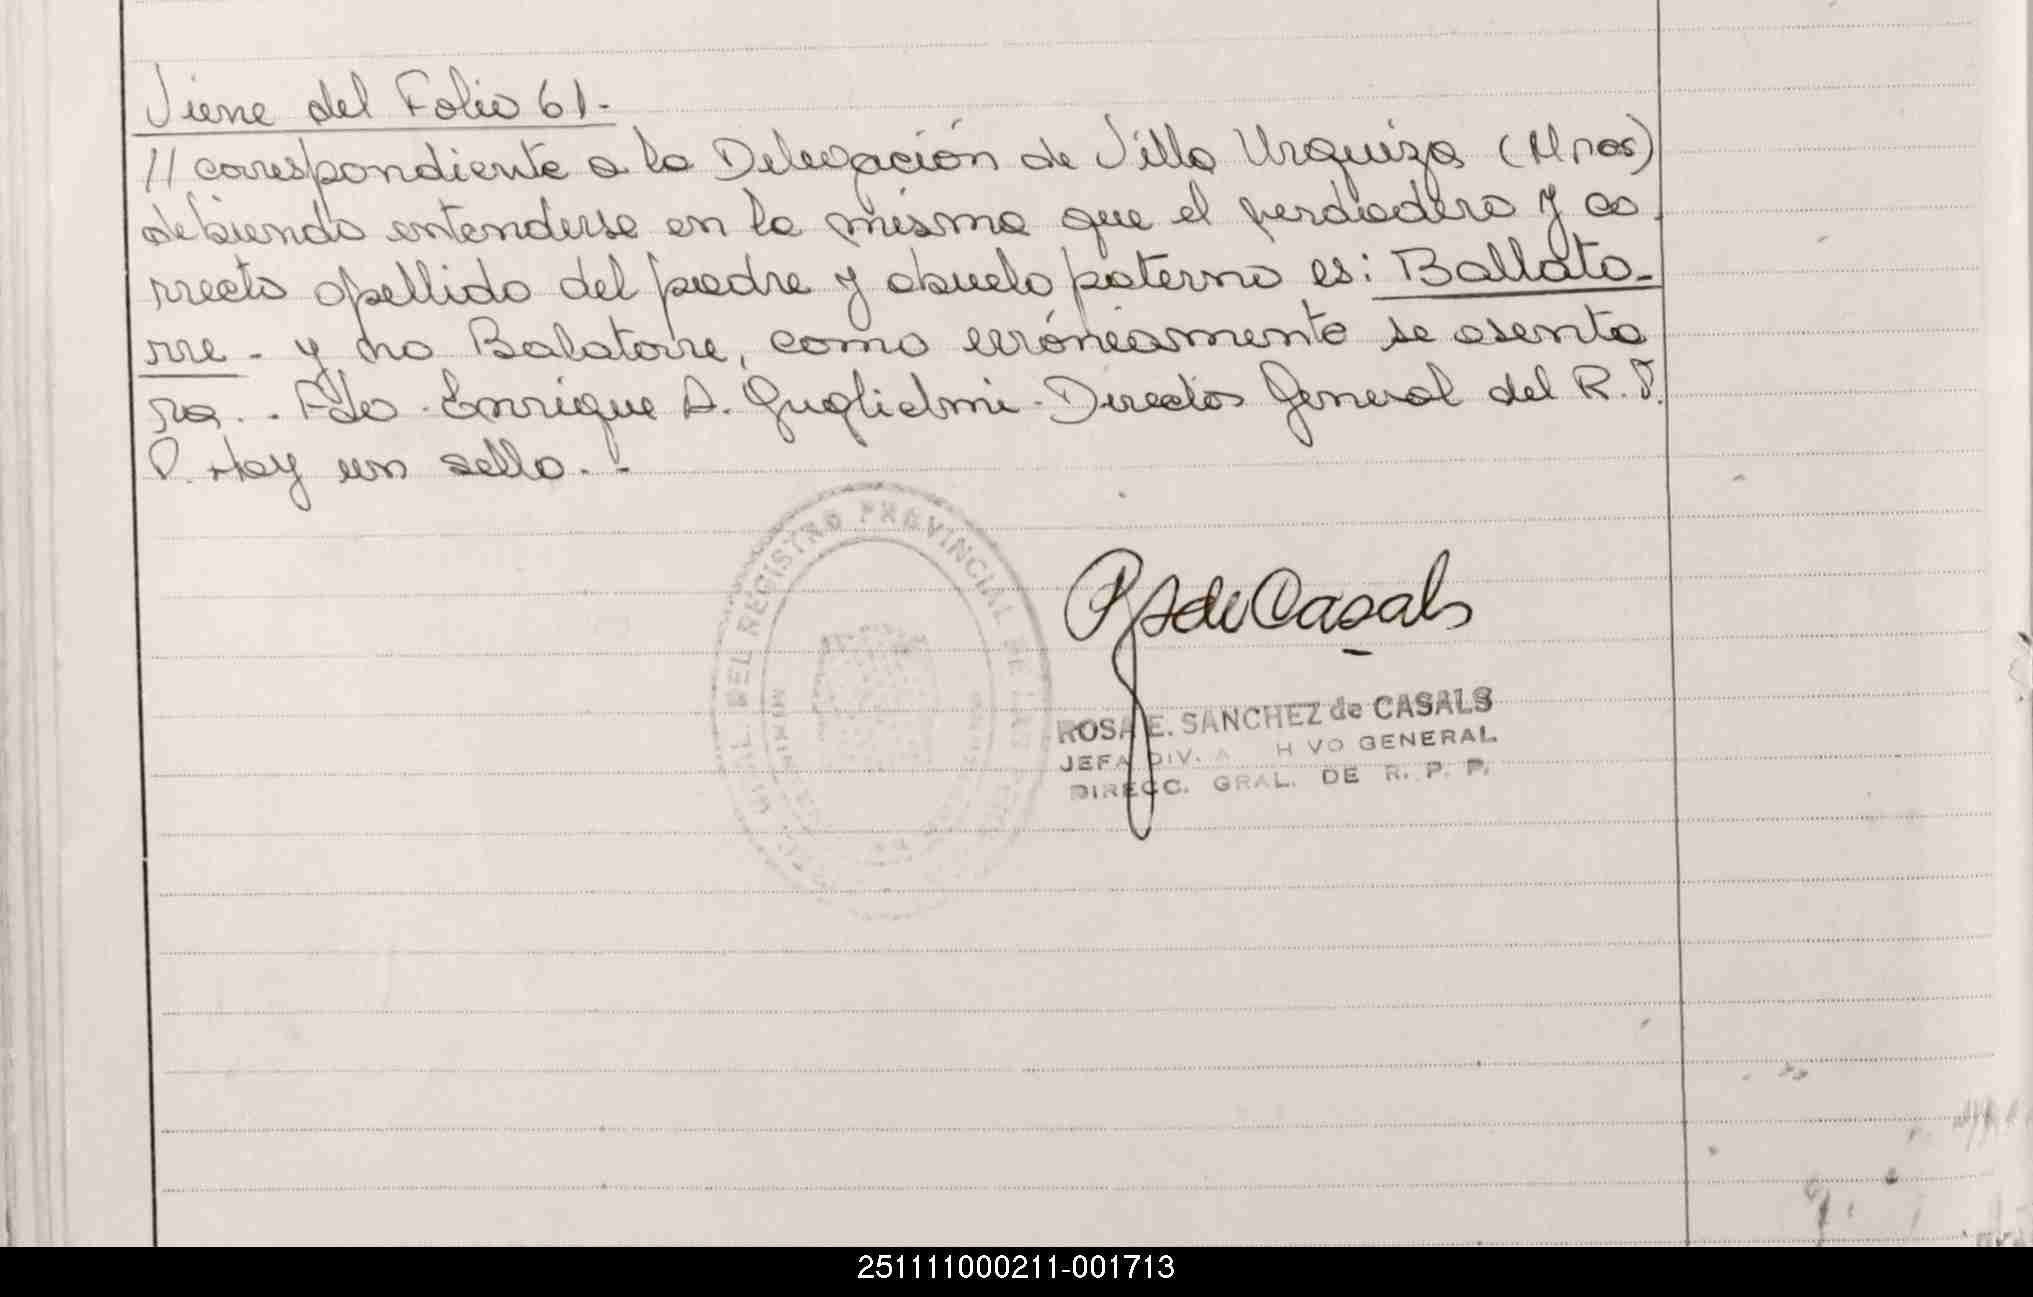 Viene del Folio 61.-
// correspondiente a la Delegación de Villa Urquiza (Mnas)
debiendo entenderse en la misma que el verdadero y co
rrecto apellido del padre y abuelo paterno es: Ballato-
rre - y no Balatorre, como erróneamente se asenta
ra. . Fdo. Enrique A. Guglielmi - Director General del R.P.
P. Hay un sello. -
DEL REGISTRO PROVINCIAL DE LAS
R S de Casals
ROSA E. SANCHEZ de CASALS
JEFA DIV. A H VO GENERAL
DIRECC. GRAL. DE R. P. P.
251111000211-001713